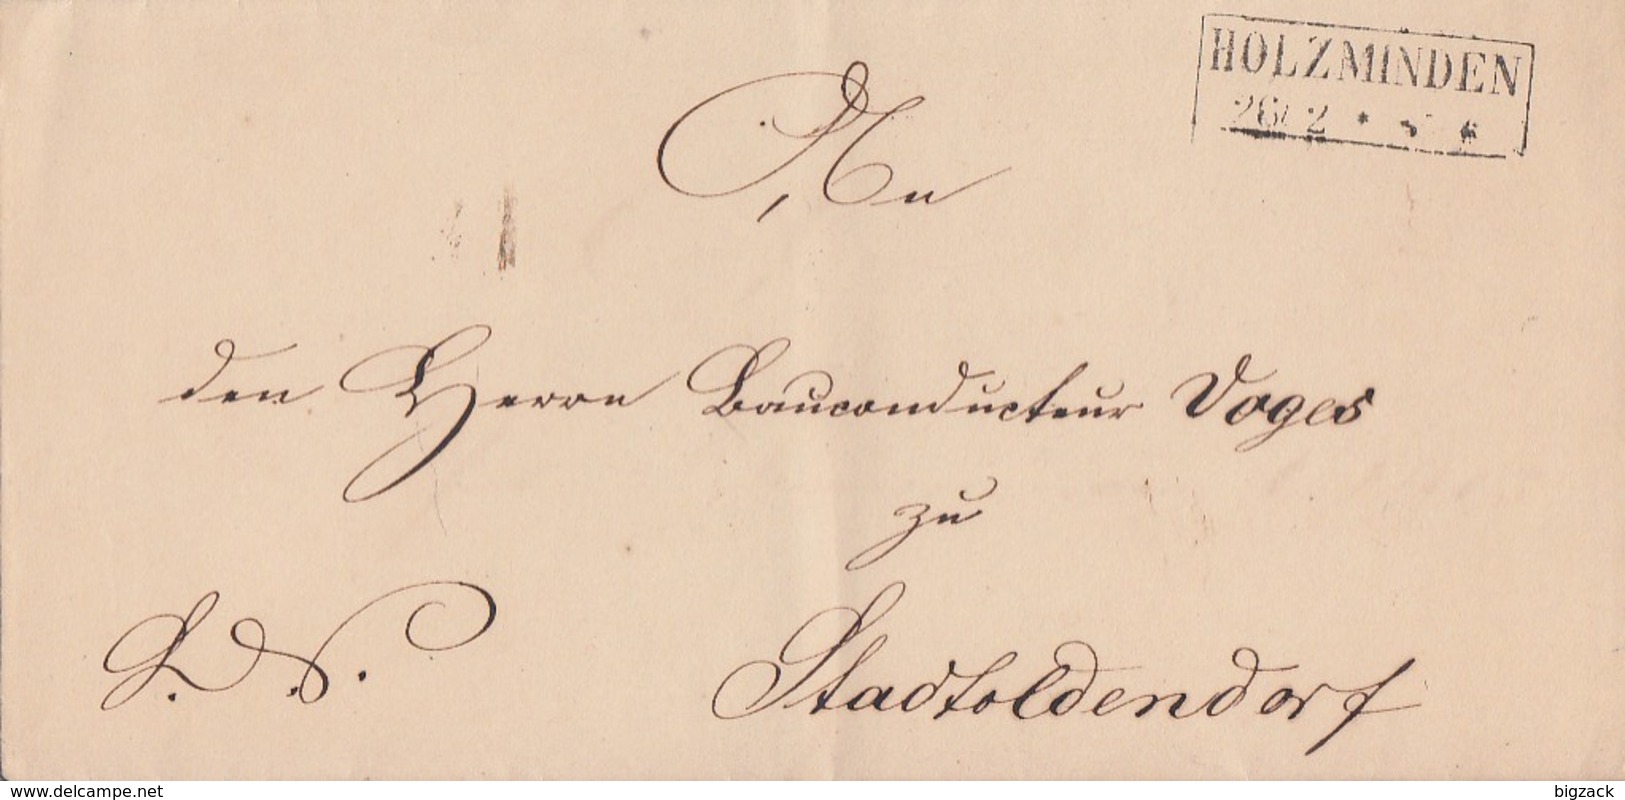 HOLZMINDEN
26 2 *
An
den Herrn Bauconducteur Voges
zu
Stadtoldendorf
www.delcampe.net
bigzack